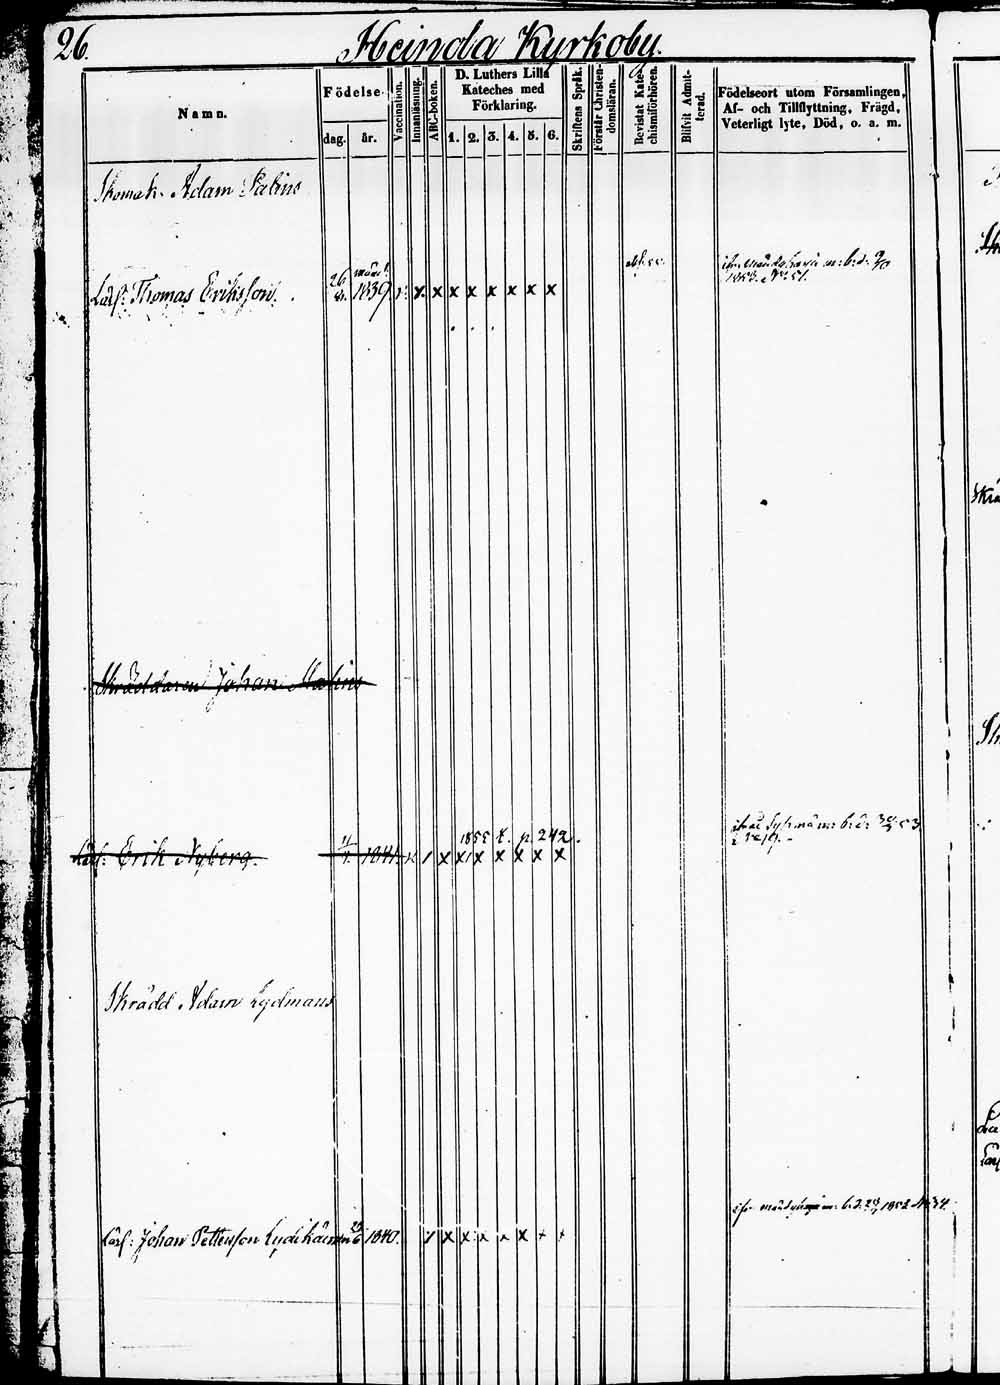 26.
Heinda Kyrkoby.
Namn.
Födelse
dag. år.
Vaccination.
Innanläsning.
ABC-boken.
D. Luthers Lilla
Kateches med
Förklaring.
1. 2. 3. 4. 5. 6.
Skriftens Språk.
Förstår Christen-
domsläran.
Bevistat Kate-
chismiförhören.
Blifvit Admit-
terad.
Födelseort utom Församlingen,
Af- och Tillflyttning, Frägd,
Veterligt lyte, Död, o. a. m.
Skomak. Adam Palins
Lärl: Thomas Eriksson. 26 1839 x x x x x x x x
1853. No 51.
Skräddaren Johan Malins
1855 t. p. 242.
Lärl: Erik Nyberg. 1841 x x x x x x x
Skrädd Adam Lydmans
1852 No 34.
Lärl: Johan Pettersson 1840. x x x x x x x